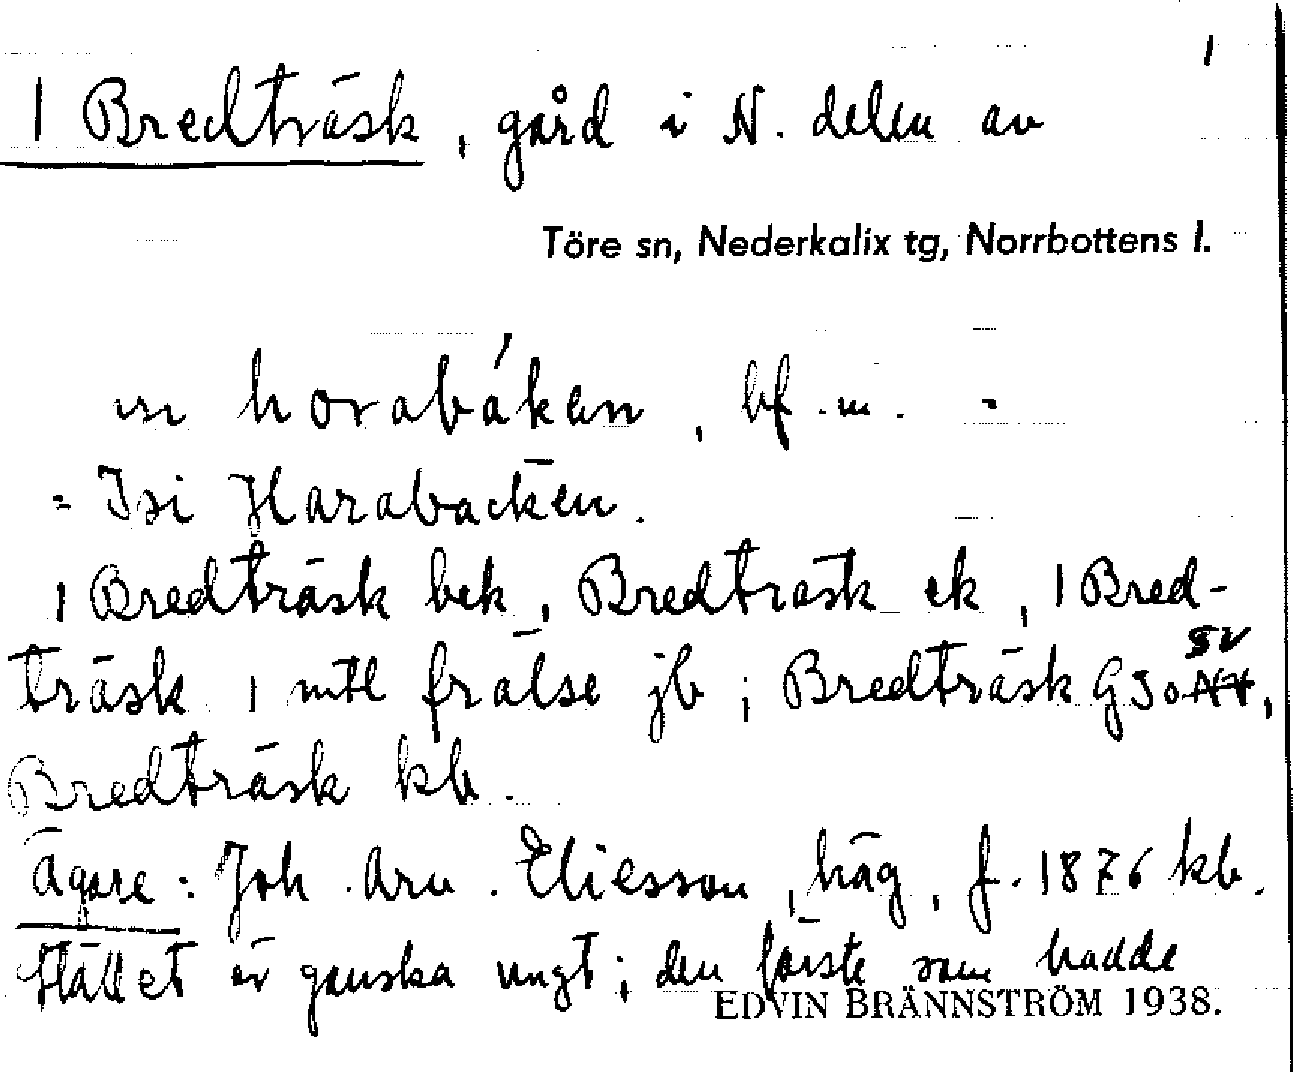 1
1 Bredträsk, gård i N. delen av
Töre sn, Nederkalix tg, Norrbottens l.
horabáken, bf. m. =
= Isi Harabacken.
1 Bredträsk bek, Bredträsk ek, 1 Bred-
träsk 1 mtl frälse jb; Bredträsk GSo SV,
Bredträsk kb.
Ägare: Joh. Arv. Eliesson, häg, f. 1876 kb.
Stället är ganska ungt; den förste som hadde
EDVIN BRÄNNSTRÖM 1938.